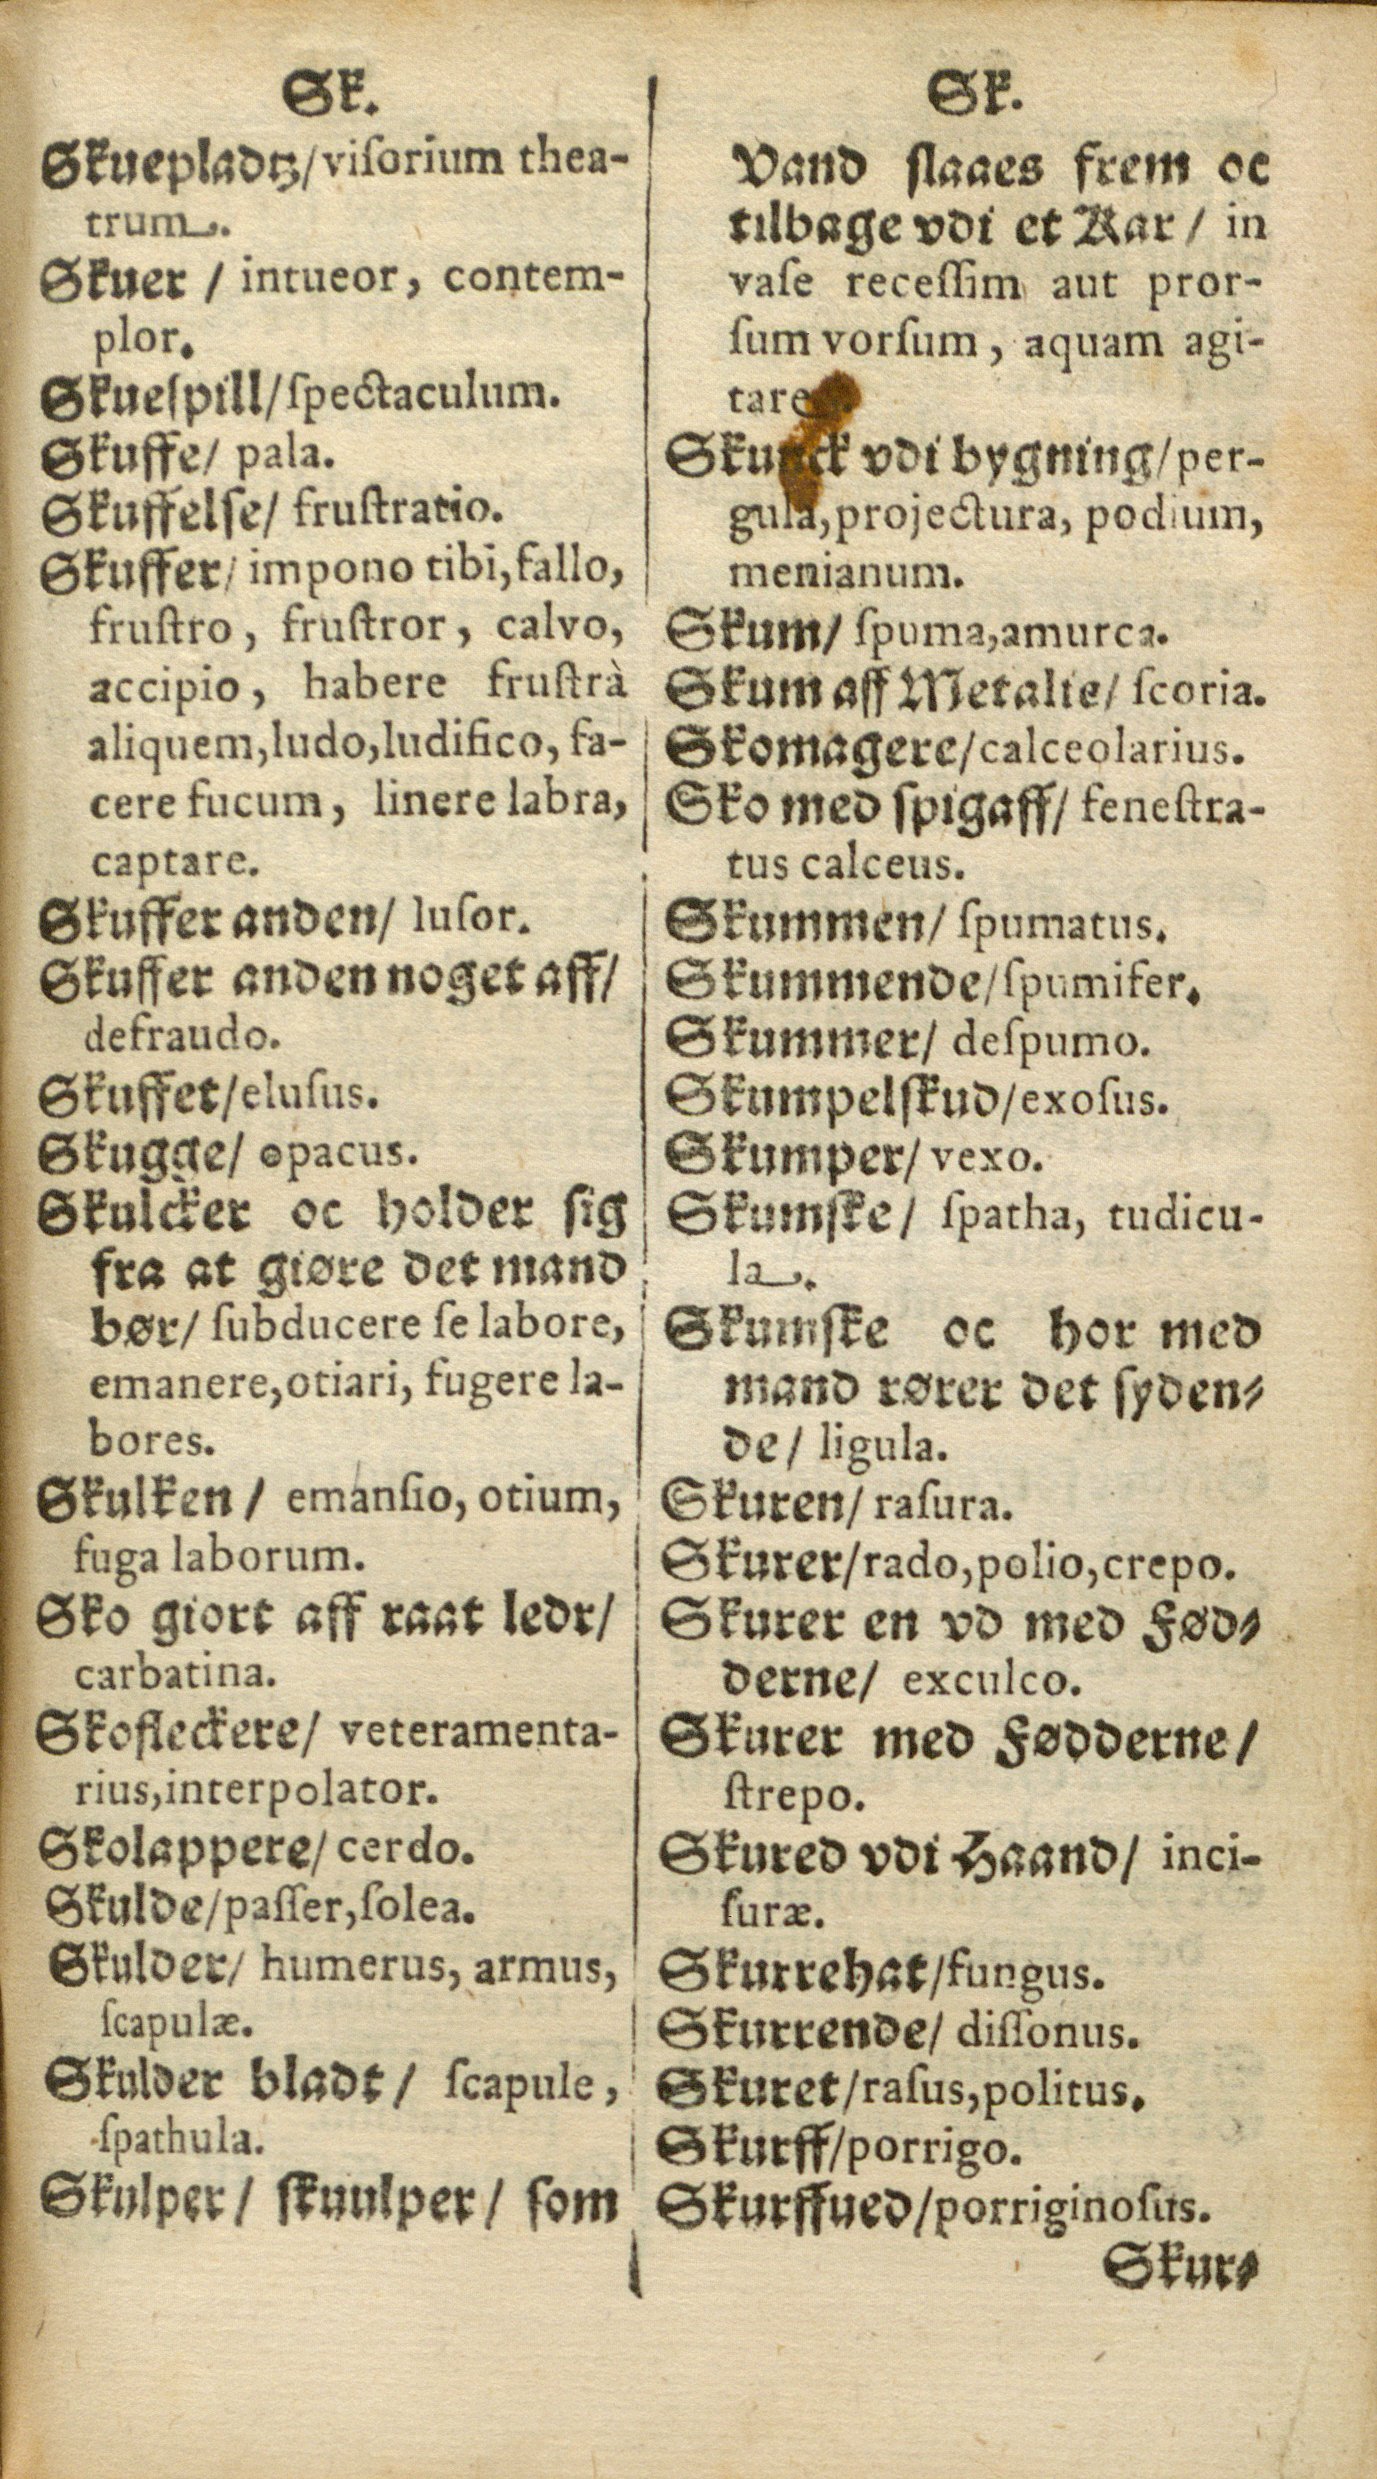 Sk.
Skuepladtz/ viſorium thea-
trum.
Skuer / intueor, contem-
plor.
Skueſpill/ ſpectaculum.
Skuffe/ pala.
Skuffelſe/ fruſtratio.
Skuffer/ impono tibi, fallo,
fruſtro, fruſtror, calvo,
accipio, habere fruſtrà
aliquem, ludo, ludifico, fa-
cere fucum, linere labra,
captare.
Skuffer anden/ luſor.
Skuffer anden noget aff/
defraudo.
Skuffet/ eluſus.
Skugge/ opacus.
Skulcker oc holder ſig
fra at giøre det mand
bør/ ſubducere ſe labore,
emanere, otiari, fugere la-
bores.
Skulken / emanſio, otium,
fuga laborum.
Sko giort aff raat ledr/
carbatina.
Skofleckere/ veteramenta-
rius, interpolator.
Skolappere/ cerdo.
Skulde/ paſſer, ſolea.
Skulder/ humerus, armus,
ſcapulæ.
Skulder bladt / ſcapule,
ſpathula.
Skulper/ ſkuulper/ ſom
Sk.
Vand ſlaaes frem oc
tilbage vdi et Kar / in
vaſe receſſim aut pror-
ſum vorſum, aquam agi-
tare.
vdi bygning/ per-
gula, projectura, podium,
menianum.
Skum/ ſpuma, amurca.
Skum aff Metalle/ ſcoria.
Skomagere/ calceolarius.
Sko med ſpigaff/ feneſtra-
tus calceus.
Skummen/ ſpumatus.
Skummende/ ſpumifer.
Skummer/ deſpumo.
Skumpelſkud/ exoſus.
Skumper/ vexo.
Skumſke / ſpatha, tudicu-
la.
Skumſke oc hor med
mand rører det ſyden-
de / ligula.
Skuren/ raſura.
Skurer/ rado, polio, crepo.
Skurer en vd med Fød-
derne/ exculco.
Skurer med Fødderne /
ſtrepo.
Skured vdi Haand/ inci-
ſuræ.
Skurrehat/ fungus.
Skurrende/ diſſonus.
Skuret/ raſus, politus.
Skurff/ porrigo.
Skurffued/ porriginoſus.
Skur-